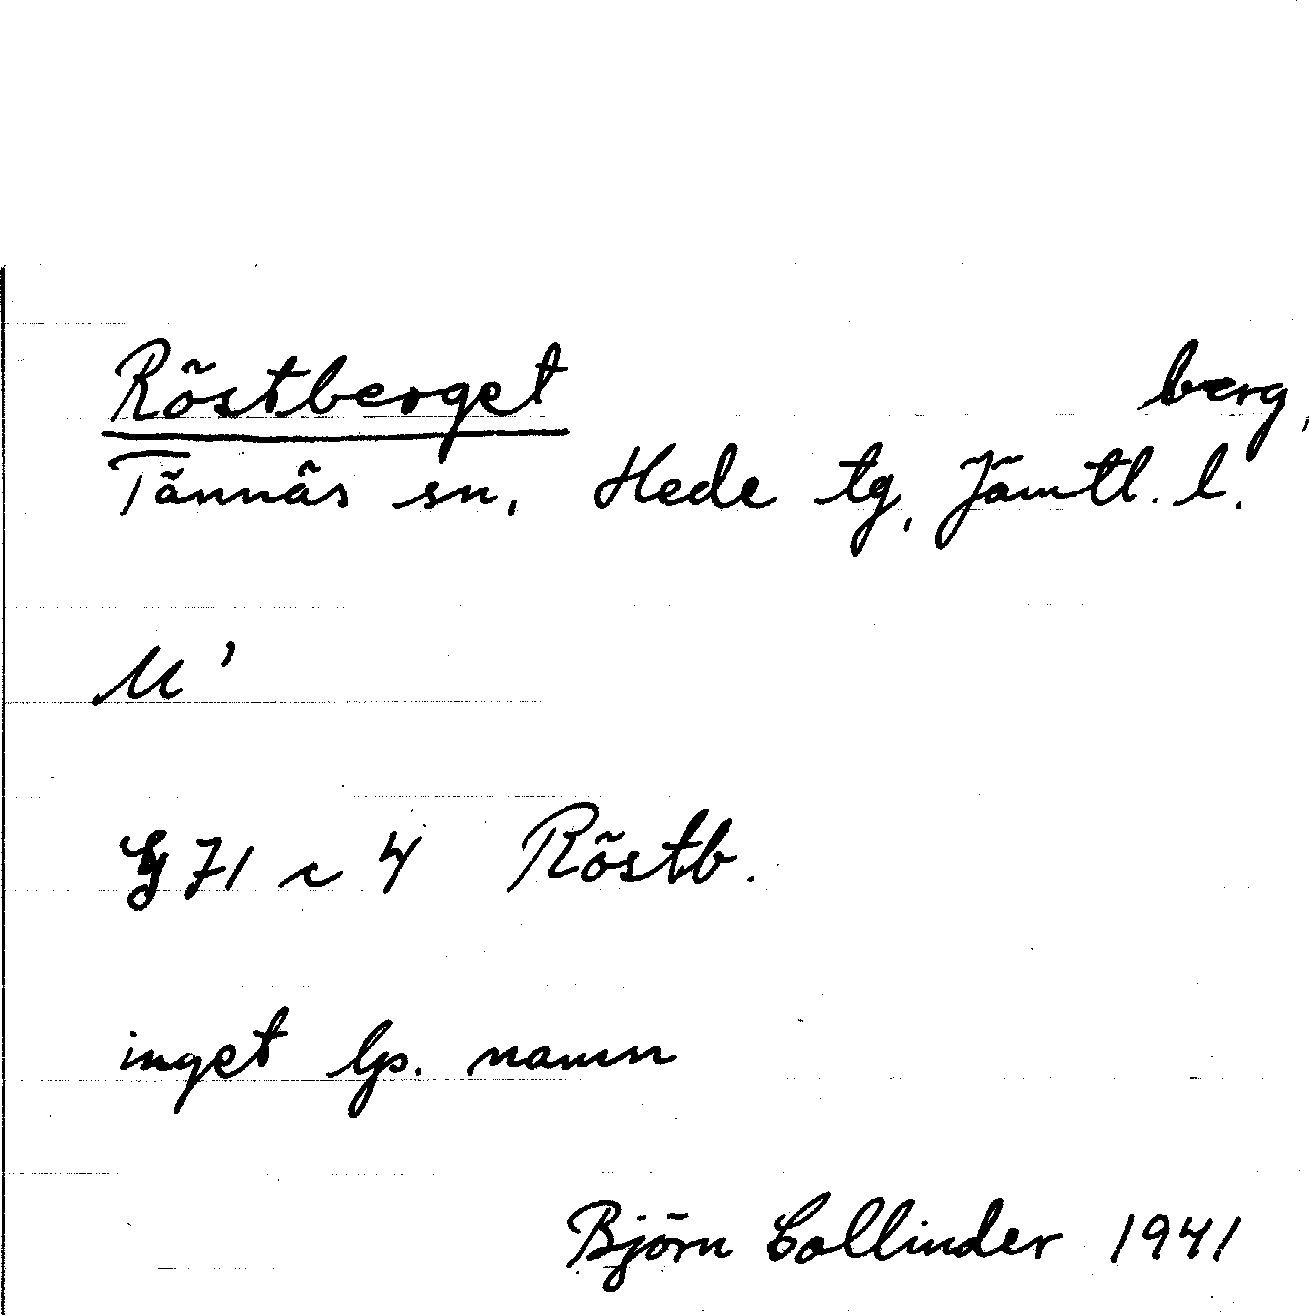 Röstberget berg,
Tännäs sn, Hede tg, Jämtl. l.
G 71 c 4 Röstb.
inget lp. namn
Björn Collinder 1941